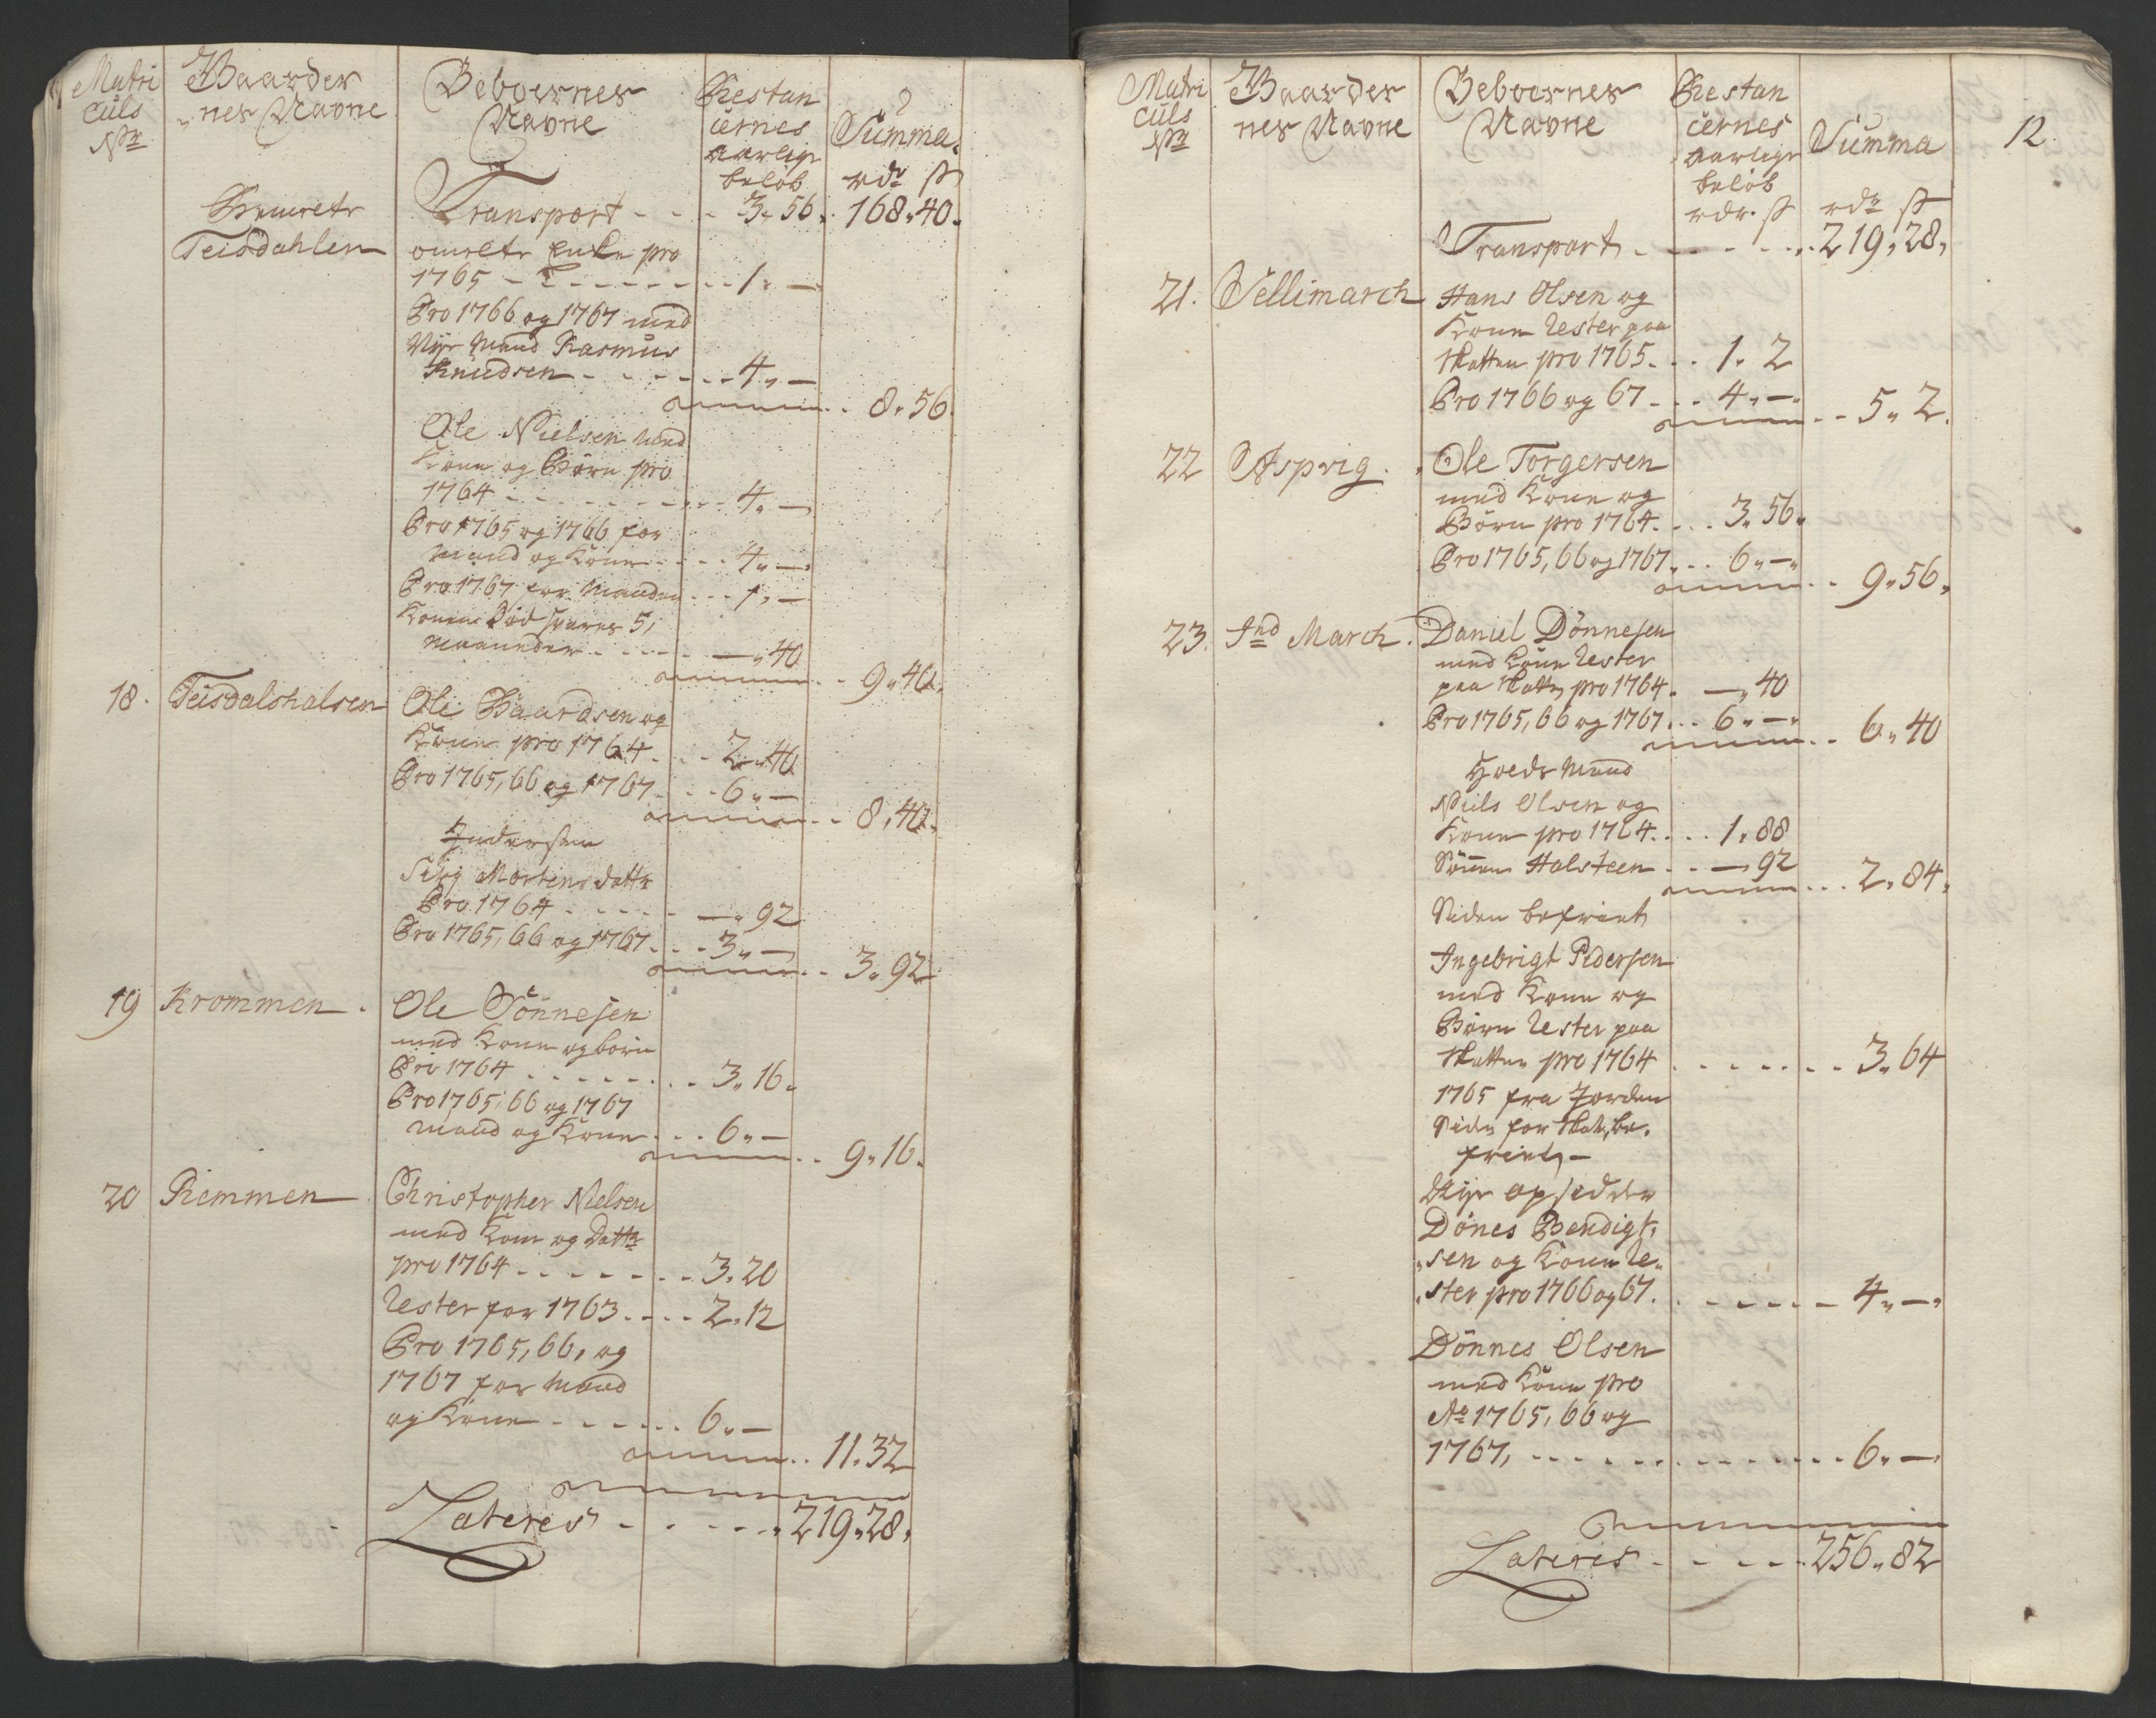 Matri
culs
No
Gaarder
nes Navne
Beboernes
Navne
Restan
cernes
aarlige
beløb
Summa.
rdr ß
Transport - - - 3. 56. 168. 40.
Teisdahlen
omelte Enke pro
1765 - - - - - - 1. —
Pro 1766 og 1767 med
Nÿe Mand Rasmus
Knudsen - - - - - - 4. —
8. 56.
Ole Nielsen med
Kone og Børn pro
1764 - - - - - - - 4. —
Pro 1765 og 1766 for
Mand og Kone - - - - 4. —
Pro 1767 for Manden - - - 1. —
Konen Død svares 5,
Maaneder - - - - - —. 40
9. 40.
18. Teisdalshalsen Ole Baardsen og
Kone pro 1764. - - - 2. 40
Pro 1765, 66 og 1767 - - - 6. —
8. 40.
Inderster
Siri Mortensdattr
Pro 1764 - - - - - —. 92
Pro 1765, 66 og 1767. - - - 3. —
3. 92
19 Krommen. Ole Tønnesen
med Kone og børn
Pro 1764 - - - - - - - 3. 16.
Pro 1765, 66 og 1767
Mand og Kone - - - 6. —
9. 16.
20 Remmen. Christopher Nielsen
med Kone og Dattr
pro 1764 - - - - - - - 3. 20
Rester for 1763. - - - - 2. 12
Pro 1765, 66, og
1767 for Mand
og Kone - - - - - - 6. —
11. 32
Lateris - - - - - 219. 28.
12
Matri
culs
No
Gaarder
nes Navne
Beboernes
Navne
Restan
cernes
aarlige
beløb
rdr. ß
Summa
rdr ß
Transport - - - - - - 219. 28.
21. Sellimarch Hans Olsen og
Kone Rester paa
Skatten pro 1765. - - 1. 2
Pro 1766 og 67 - - - 4. —.
5. 2.
22 Aspvig. Ole Torgersen
med Kone og
Børn pro 1764. - - - 3. 56.
Pro 1765, 66 og 1767. - - 6. —.
9. 56.
23. Ind March. Daniel Dønnesen
med Kone Rester
paa Skatten pro 1764. —. 40
Pro 1765, 66 og 1767. - - 6. —.
6. 40
Huus Mand
Niels Olsen og
Kone pro 1764. - - - 1. 88
Sønnen Halsteen - - —. 92
2. 84.
Siden befriet
Ingebrigt Pedersen
med Kone og
Børn Rester paa
Skatten pro 1764 - - - - - - - 3. 64
1765 fra Jorden
Siden for Skat, be-
friet, —
Nÿe opsidder
Dønes Bendigt-
sen og Kone Re-
ster pro 1766 og 67. - - - - - - 4. —.
Dønnes Olsen
med Kone pro
Ao 1765, 66 og
1767, - - - - - - - - - - - - 6. —.
Lateris - - - - - 256. 82